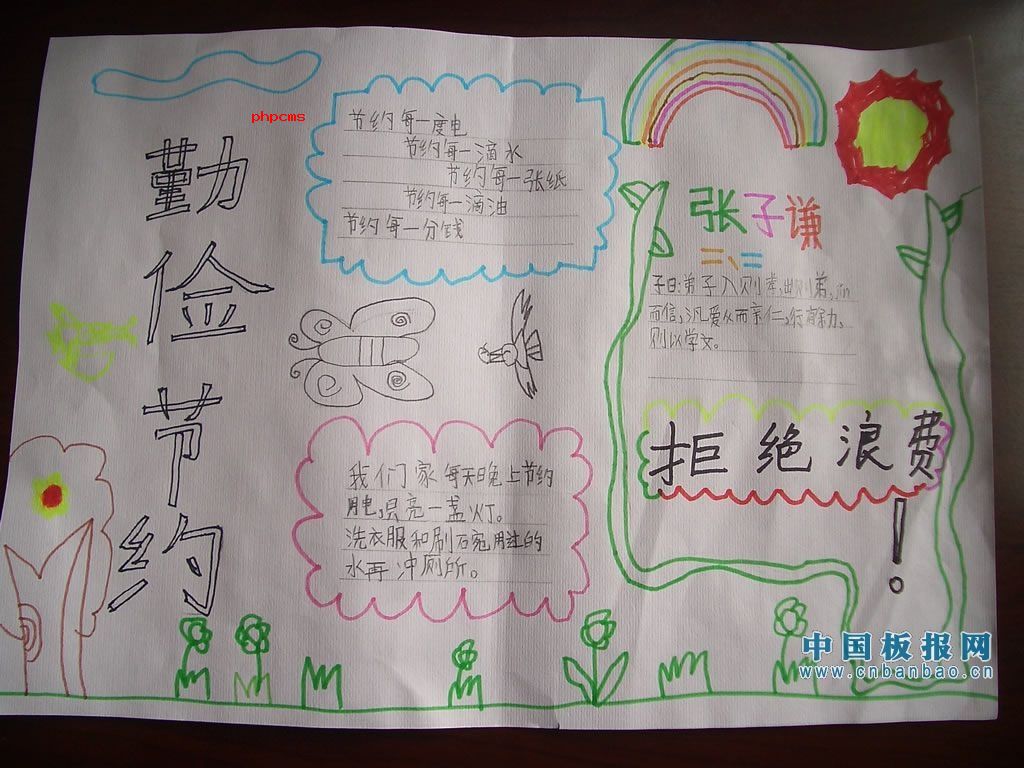 勤俭节约
phpcms
节约每一度电
节约每一滴水
节约每一张纸
节约每一滴油
节约每一分钱
张子谦
二、二
子曰:弟子入则孝,出则弟,
而信,汎爱众而亲仁,行有余力,
则以学文。
拒绝浪费!
我们家每天晚上节约
用电,只亮一盏灯。
洗衣服和刷碗用过的
水再冲厕所。
中国板报网
www.cnbanbao.cn